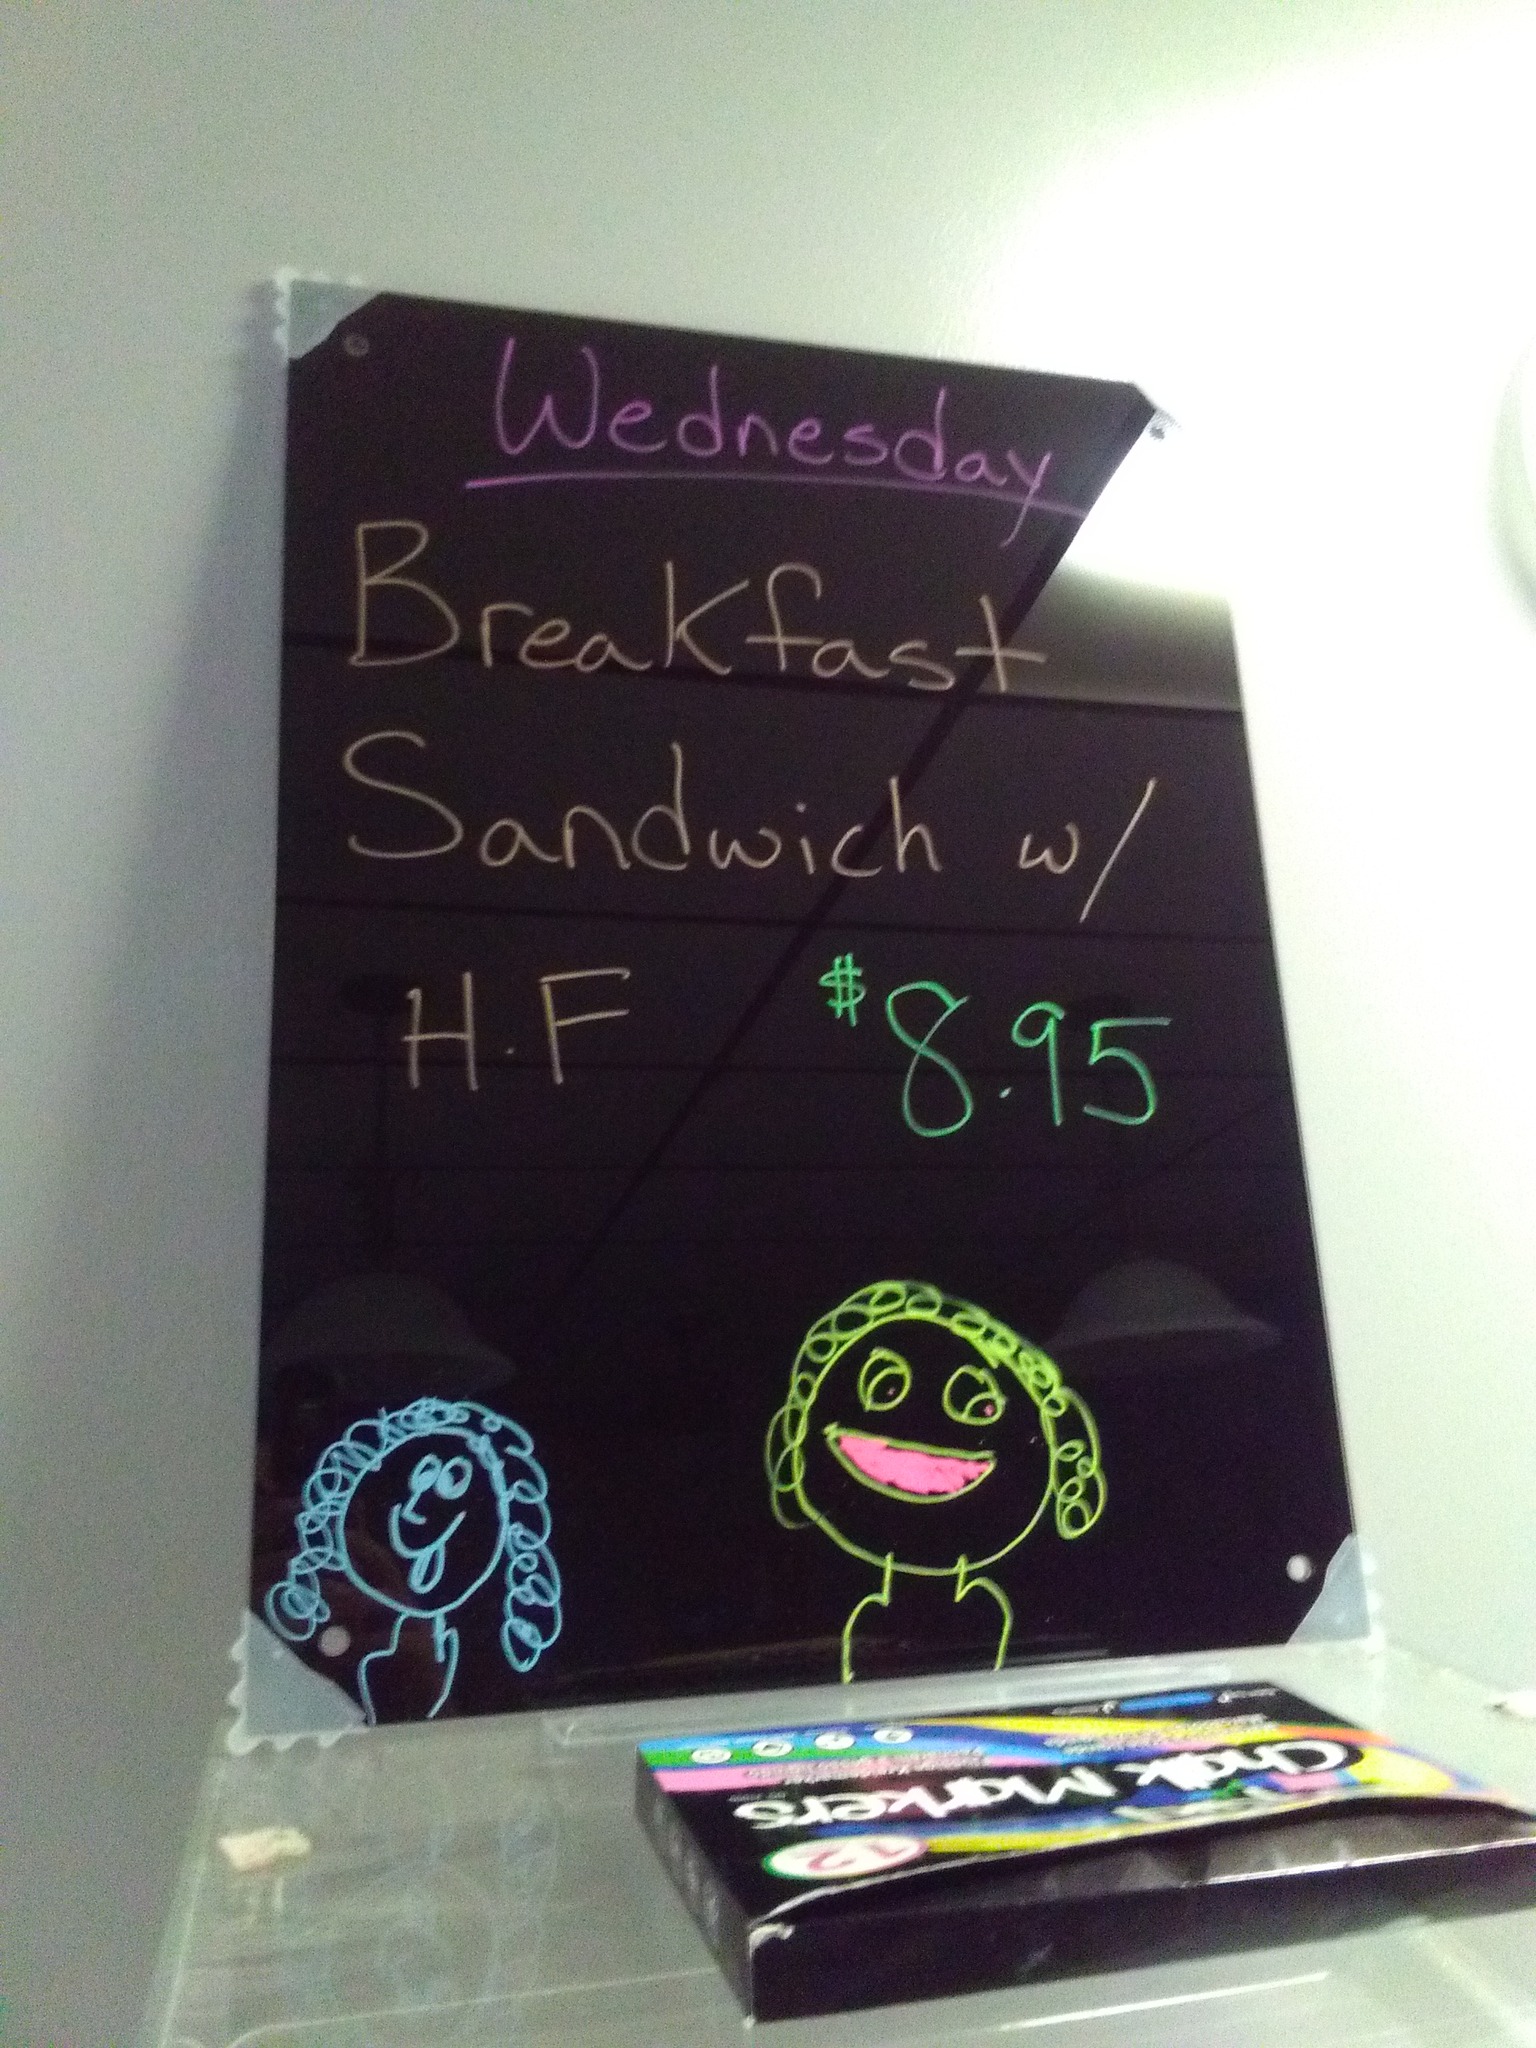 Wednesday
Breakfast
Sandwich w/
H.F $8.95
Chalk Markers
12